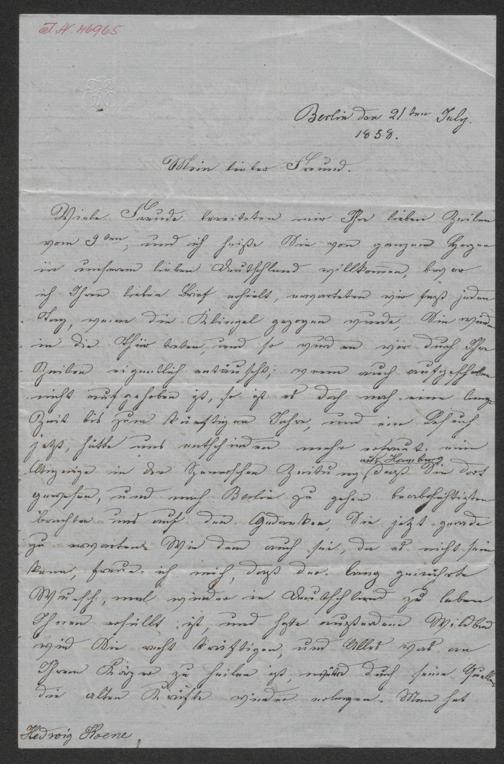 I.N. 46965
Berlin den 21ten July.
1858.
Mein lieber Freund.
Viele Freude bereiteten mir Ihre lieben Zeilen
vom 9ten, und ich heiße Sie von ganzem Herzen
in unserem lieben Deutschland willkommen, bevor
ich Ihren lieben Brief erhielt, erwarteten wir fast jeden
Tag, wenn die Klingel gezogen wurde, Sie würden
in die Thür treten, und so wurden wir durch Ihre
Zeilen eigentlich enttäuscht; wenn auch aufgeschoben
nicht aufgehoben ist, so ist es doch noch eine lange
Zeit bis zum künftigen Jahr, und ein Besuch
jetzt, hätte uns entschieden mehr erfreut, eine
Anzeige in der Spenerschen Zeitung aus Hamburg (daß Sie dort
gewesen, und nach Berlin zu gehen beabsichtigten
brachte uns auf den Gedanken, Sie jetzt gerade
zu erwarten. Wie dem auch sei, da es nicht sein
kann, freue ich mich, daß der lang genährte
Wunsch, mal wieder in Deutschland zu leben
Ihnen erfüllt ist, und hoffe außerdem Wildbad
wird Sie recht kräftigen, und Alles was an
Ihrem Körper zu heilen ist, durch seine Quellen
die alten Kräfte wieder erlangen. Man hat
Hedwig Koene